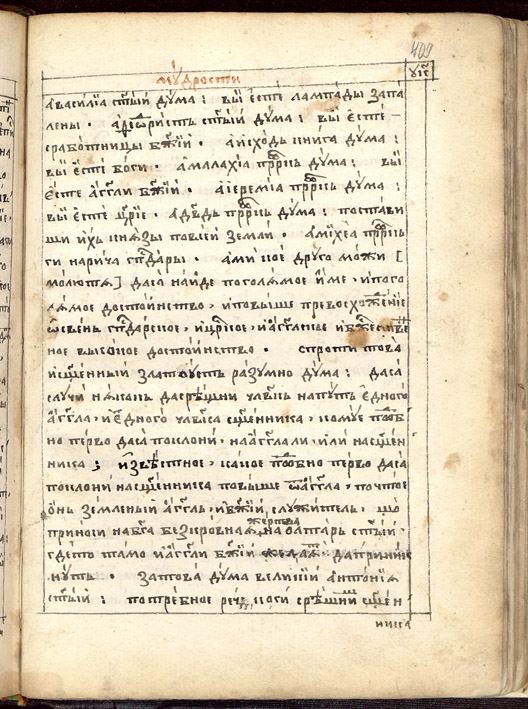 409
мꙋ́дрости
уі҃є
а҆васи́лїа ст҃ый дꙋ́ма : вы̀ є҆стѐ лампа́ды запа
лены .
ст҃ый дꙋ́ма : вы̀ є҆стѐ
сработницы бж҃їй . а҆исхо́дъ кни́га дꙋ́ма :
вы̀ є҆стѐ бо́ги . а҆мала́хїа прⷪ҇ро́къ дꙋ́ма : вы̀
є҆стѐ а҆́гг҃ли бж҃їй . а҆їеремі́а прⷪ҇ро́къ дꙋ́ма :
вы̀ є҆стѐ цр҃їе . а҆дв҃дъ прⷪ҇ро́къ дꙋ́ма : поста́ви
ши и҆́хъ кнѧ́зы по всей земли́ . а҆михе́а прⷪ҇ро́къ
ги нари́ча гпⷭ҇да́ры . а҆мѝ кое́ дрꙋ́го мо́жи [
молютѧ ] даса на́йде поголѧ́мое и҆́ме , и҆пого
лѧ́мое досто́инство , и҆повы́ше превосхожде́нїе
ѡ҆све́нь гпⷭ҇да́рское , и҆ цр҃ское , и҆ а҆́гг҃лское и҆ бж҃естве
ное высо́кое досто́инство . спроти това̀
и҆сщ҃е́нный златоꙋ́стъ разꙋ́мно дꙋ́ма : даса
слꙋчѝ нѧ́конь дасрѣ́щни чл҃вкъ на пꙋ́ть є҆дного
а҆́гг҃ла , и҆ є҆дного чл҃вка сщ҃е́нника , комꙋ̀ е подо́б
но пе́рво даса поклонѝ , на а҆́гг҃лали , и҆ли на сщ҃е́н
ника ; и҆звѣ́стное , како̀ е подо́бно пе́рво даса
поклонѝ на сщ҃е́нника повы́ше ѿ а҆́гг҃ла , почто̀ е
ѻ҆́нь земле́ный а҆́гг҃лъ , и҆ бж҃їй слꙋжи́тель , що
прино́си на бг҃а безкро́внаѧ же́ртва на ѻ҆лта́ръ ст҃ый ,
где́то та́мо и҆ а҆́гг҃ли бж҃їй жела́ѧтъ да приник
нꙋтъ . затова̀ дꙋ́ма вели́кїй а҆нто́нїа
ст҃ый : потре́бное рече́ , коги́ срѣ́щни сщ҃е́н
ника